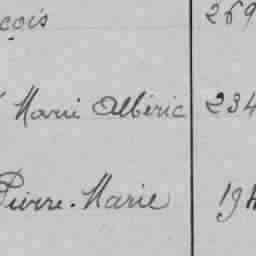 çois 269
Marie Albéric 234
Pierre-Marie 194